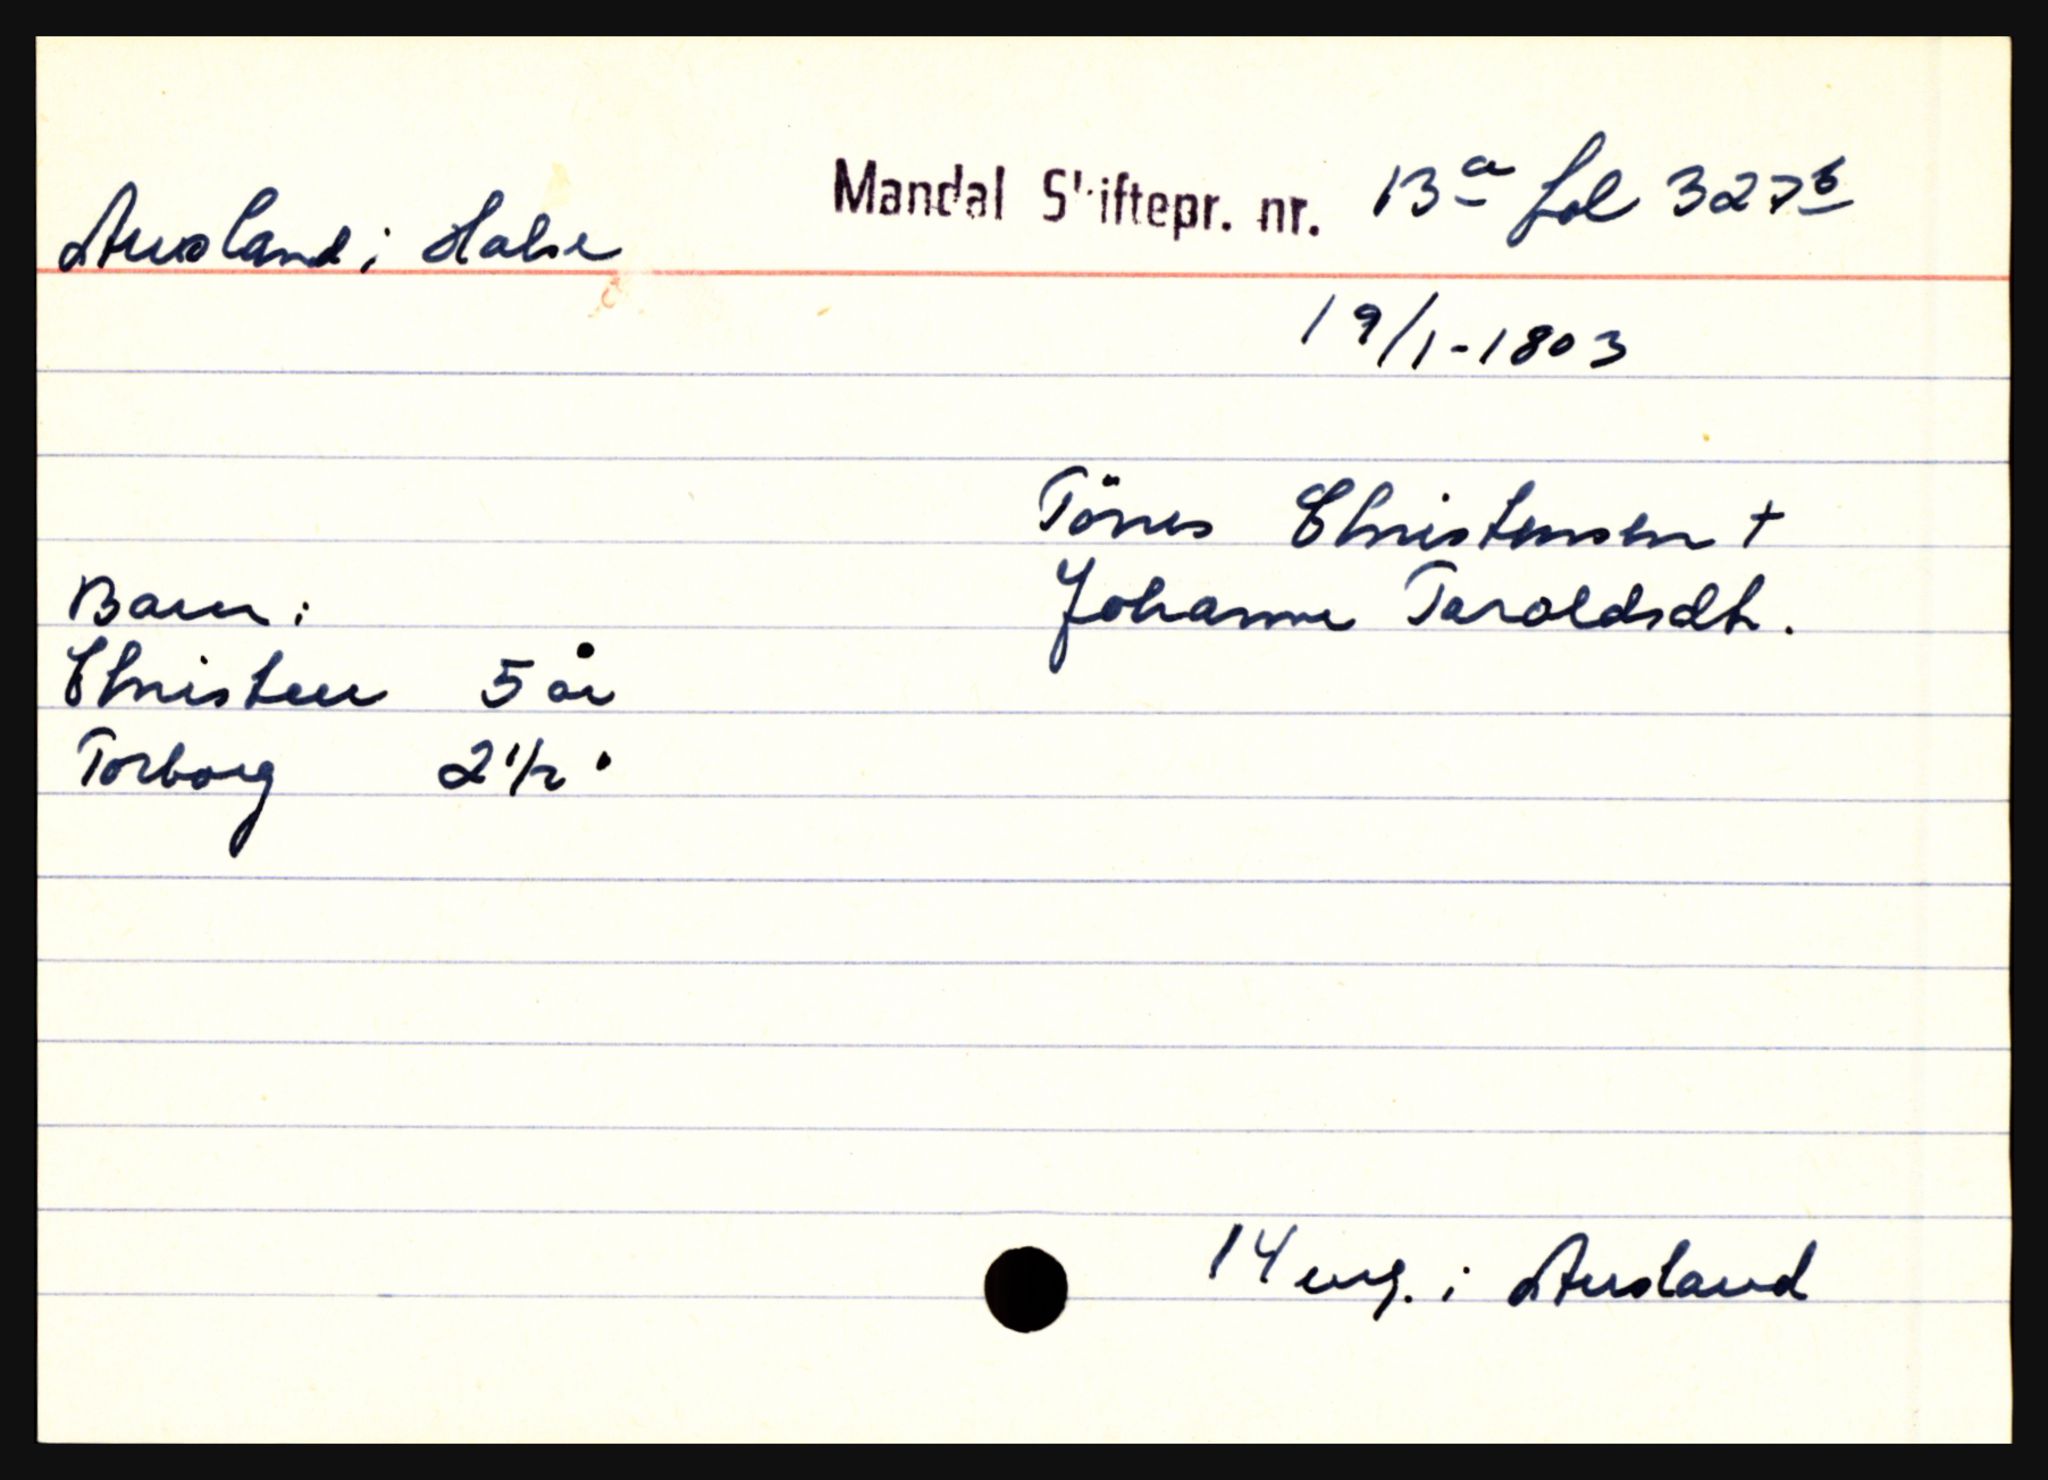 Ausland i Halse
Mandal Skiftepr. nr. 13a fol 327b
19/1-1803
Tönes Christensen +
Johanne Taroldsdt.
Barn:
Christen 5 år
Torborg 2 1/2 "
14 eng. i Ausland